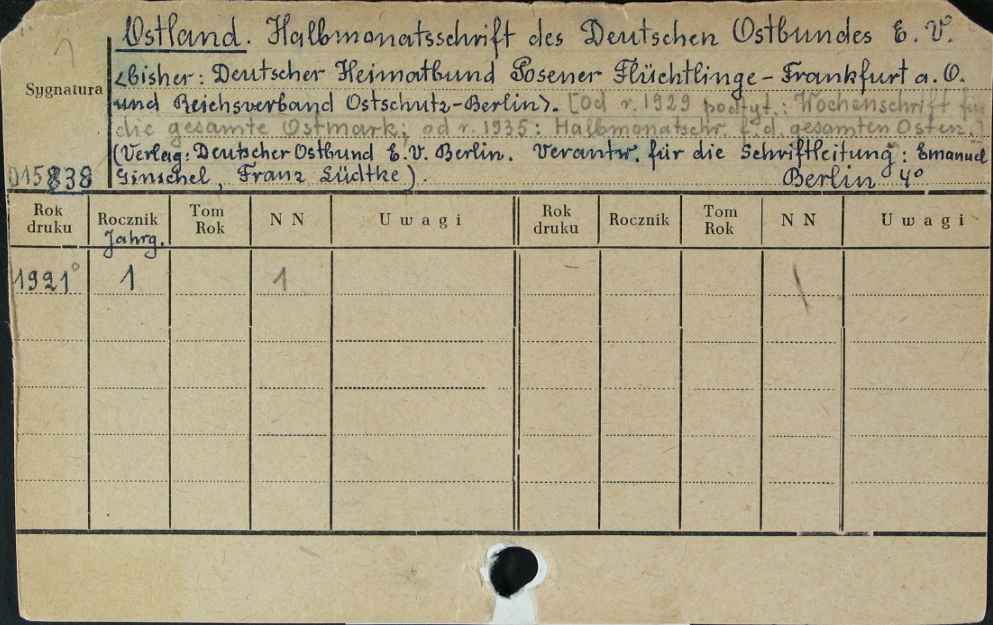 Ostland. Halbmonatsschrift des Deutschen Ostbundes E. V.
<bisher: Deutscher Heimatbund Posener Flüchtlinge - Frankfurt a. O.
Sygnatura
und Reichsverband Ostschutz-Berlin>. [Od r. 1929 podtyt.: Wochenschrift für
die gesamte Ostmark; od r. 1935: Halbmonatschr. f. d. gesamten Osten.]
(Verlag: Deutscher Ostbund E. V. Berlin. Verantw. für die Schriftleitung: Emanuel
015838 Ginschel, Franz Lüdtke). Berlin 4°
Rok druku Rocznik Tom Rok N N Uwagi Rok druku Rocznik Tom Rok N N Uwagi
Jahrg.
1921° 1 1